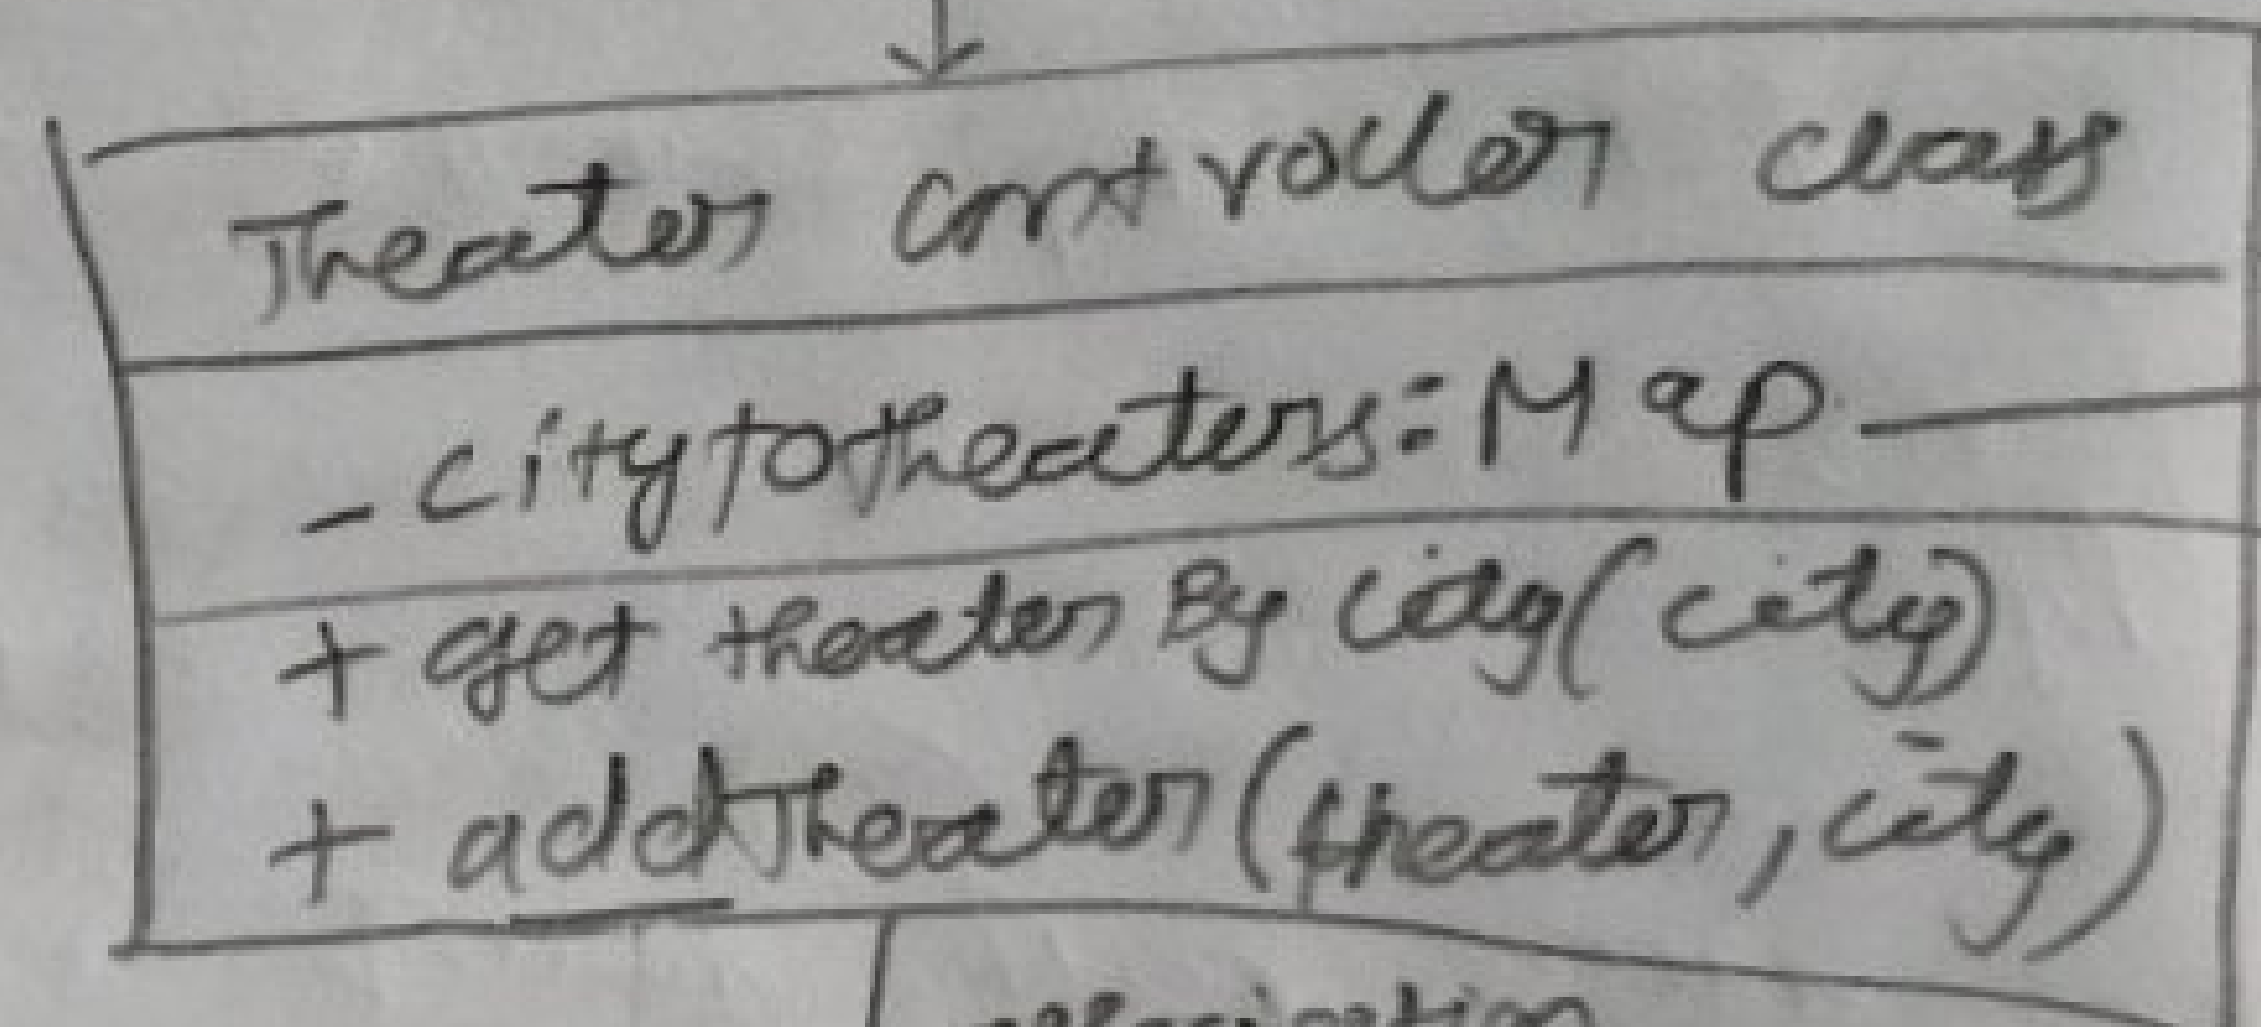 Theater controller class
- citytotheaters: Map
+ get theater By city(city)
+ addTheater(theater, city)